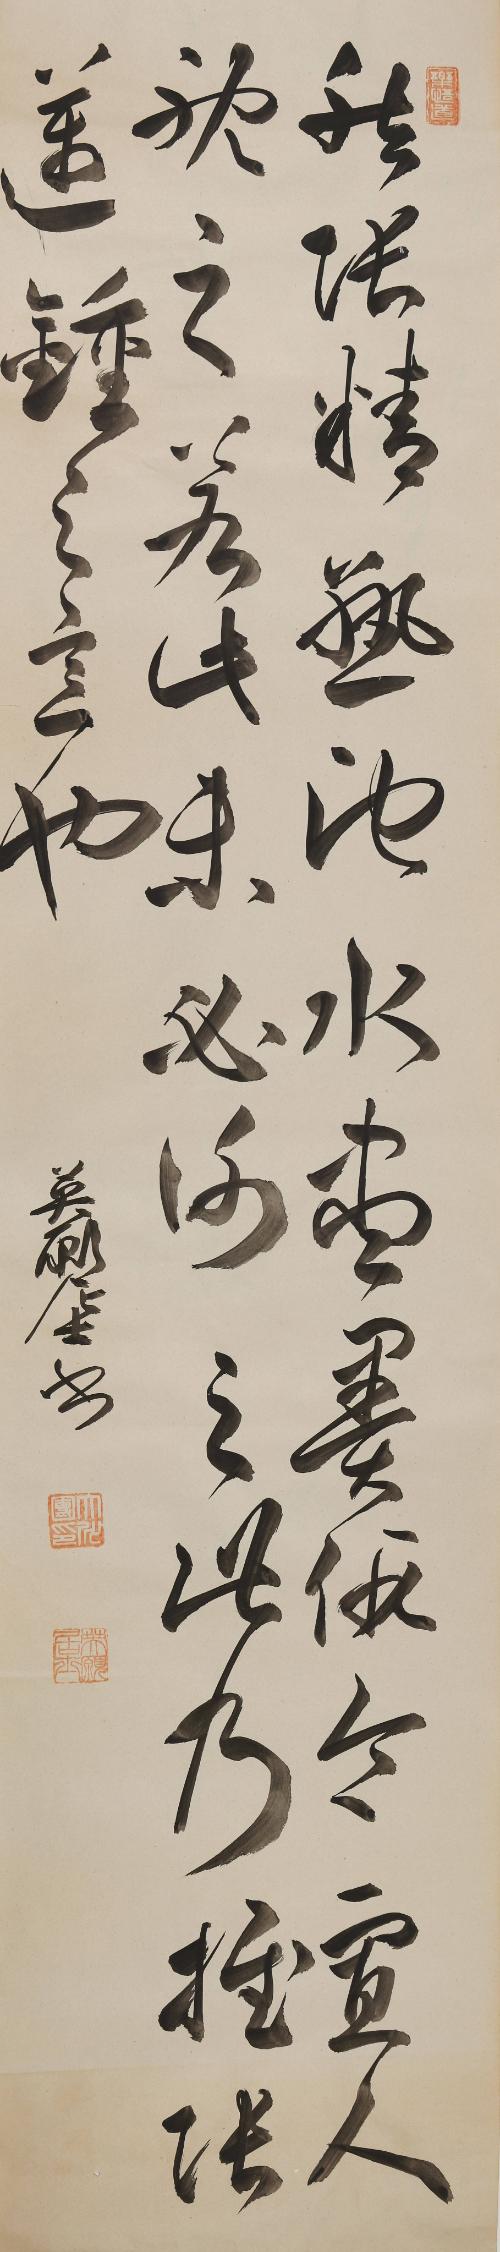 然張精熟池水盡墨假令寡人
耽之若此未必謝之此乃推張
邁鍾之意也
居士書